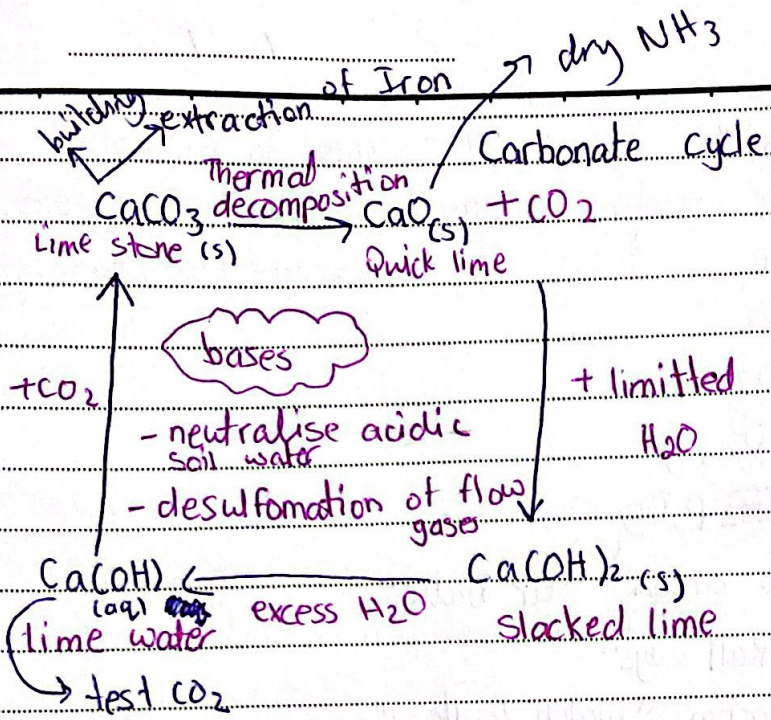 dry NH3
of Iron
building
extraction
Carbonate cycle
Thermal
decomposition
CaCO3
CaO(s) + CO2
Lime stone (s)
Quick lime
bases
+CO2
+ limitted
H2O
- neutralise acidic
soil water
- desulfomation of flow
gases
Ca(OH)
(aq)
excess H2O
Ca(OH)2 (s)
lime water
slacked lime
test CO2